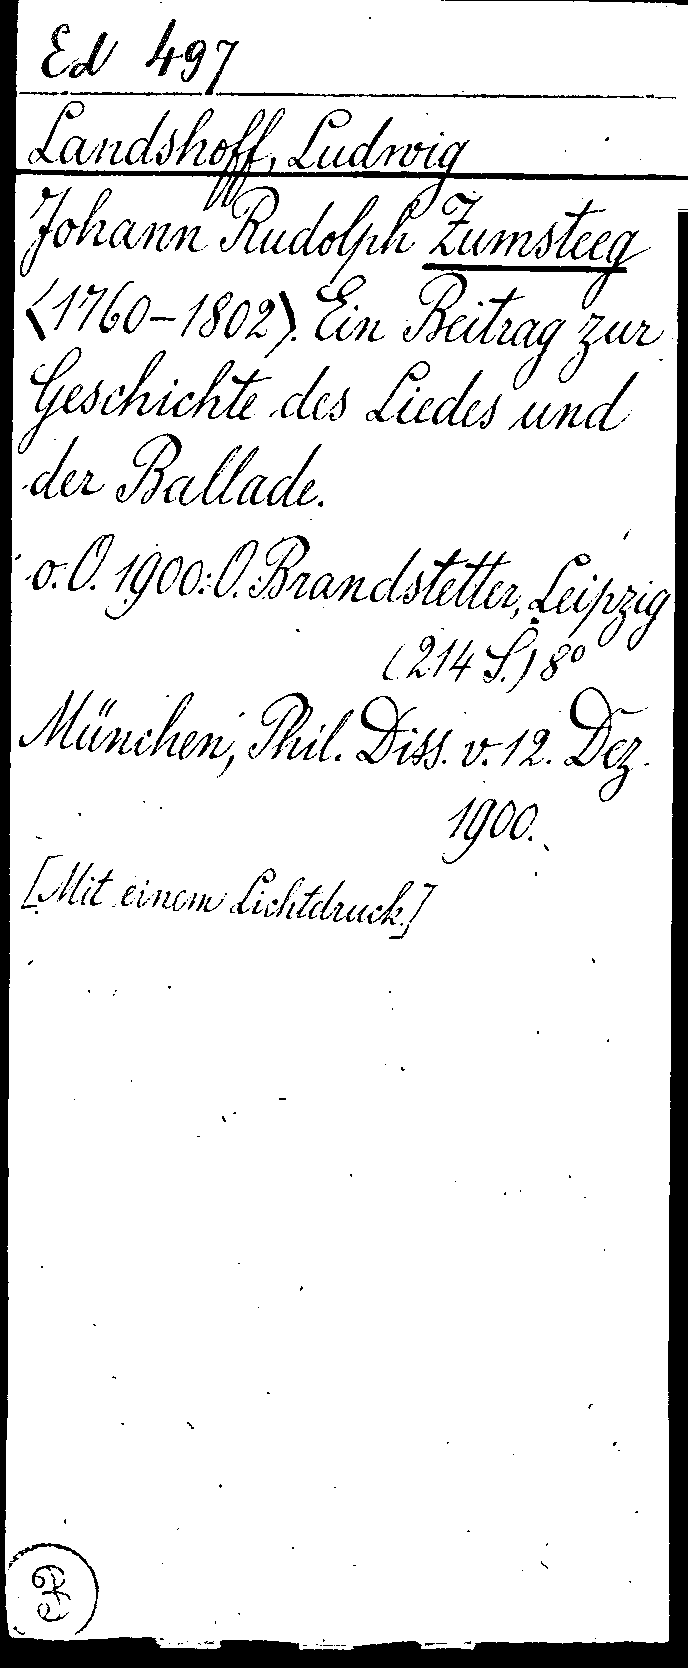 Ed 497
Landshoff, Ludwig
Johann Rudolph Zumsteeg
<1760-1802>. Ein Beitrag zur
Geschichte des Liedes und
der Ballade.
o. O. 1900: O. Brandstetter, Leipzig
(214 S.) 8°
München, Phil. Diss. v. 12. Dez.
1900.
[Mit einem Lichtdruck.]